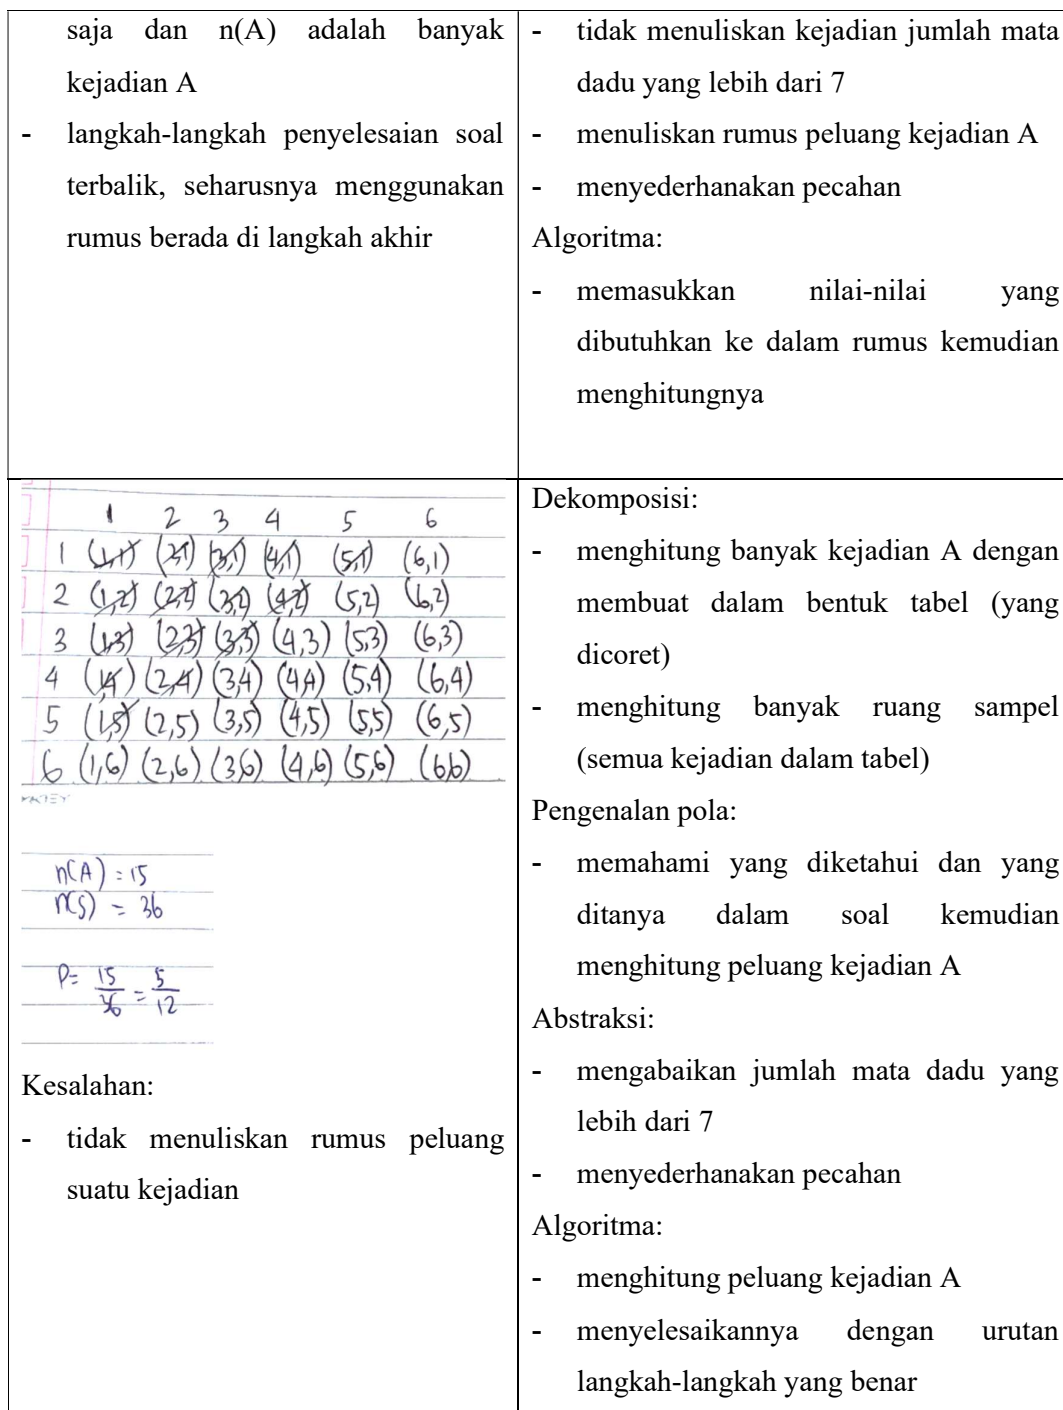 saja dan n(A) adalah banyak
kejadian A
- langkah-langkah penyelesaian soal
terbalik, seharusnya menggunakan
rumus berada di langkah akhir
- tidak menuliskan kejadian jumlah mata
dadu yang lebih dari 7
- menuliskan rumus peluang kejadian A
- menyederhanakan pecahan
Algoritma:
- memasukkan nilai-nilai yang
dibutuhkan ke dalam rumus kemudian
menghitungnya
1 2 3 4 5 6
1 (1,1) (2,1) (3,1) (4,1) (5,1) (6,1)
2 (1,2) (2,2) (3,2) (4,2) (5,2) (6,2)
3 (1,3) (2,3) (3,3) (4,3) (5,3) (6,3)
4 (1,4) (2,4) (3,4) (4,4) (5,4) (6,4)
5 (1,5) (2,5) (3,5) (4,5) (5,5) (6,5)
6 (1,6) (2,6) (3,6) (4,6) (5,6) (6,6)
n(A) = 15
n(S) = 36
P = 15/36 = 5/12
Kesalahan:
- tidak menuliskan rumus peluang
suatu kejadian
Dekomposisi:
- menghitung banyak kejadian A dengan
membuat dalam bentuk tabel (yang
dicoret)
- menghitung banyak ruang sampel
(semua kejadian dalam tabel)
Pengenalan pola:
- memahami yang diketahui dan yang
ditanya dalam soal kemudian
menghitung peluang kejadian A
Abstraksi:
- mengabaikan jumlah mata dadu yang
lebih dari 7
- menyederhanakan pecahan
Algoritma:
- menghitung peluang kejadian A
- menyelesaikannya dengan urutan
langkah-langkah yang benar